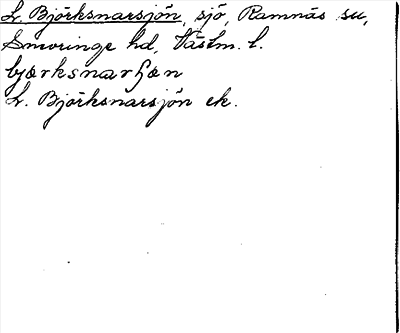 L. Björksnarsjön, sjö, Ramnäs sn,
Snevringe hd, Västm. l.
bjærksnarʃæn
L. Björksnarsjön ek.